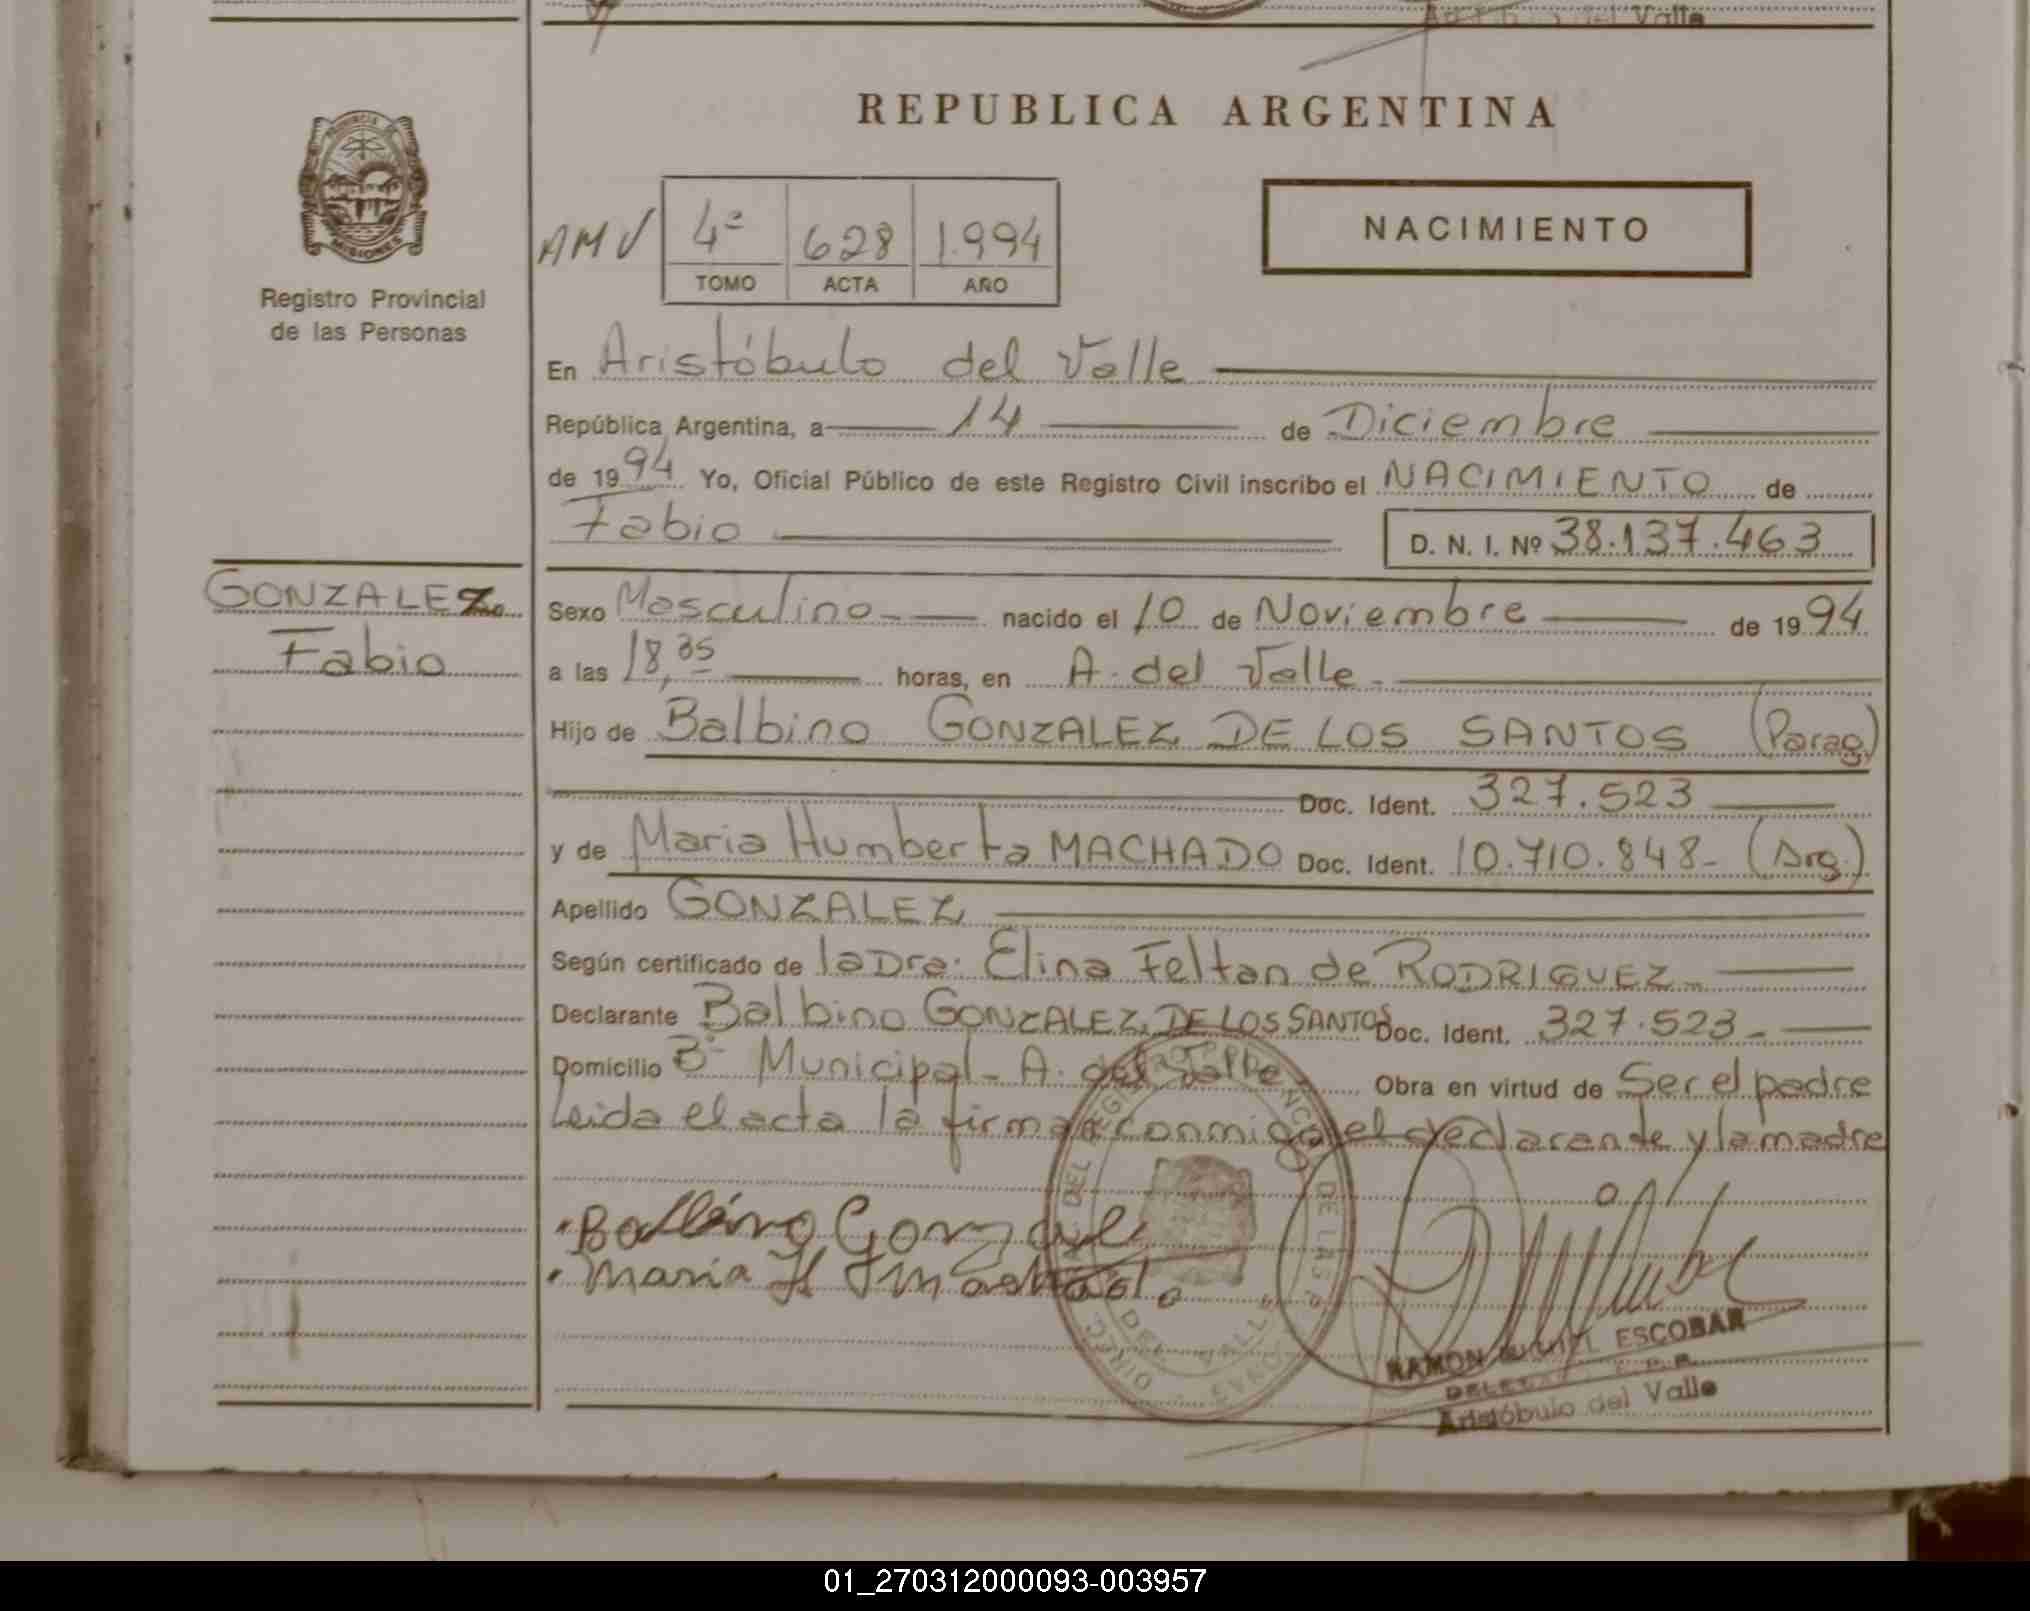 Aristóbulo del Valle
REPUBLICA ARGENTINA
PROVINCIA DE
MISIONES
Registro Provincial
de las Personas
AMV
4ª 628 1.994
TOMO ACTA AÑO
NACIMIENTO
En Aristóbulo del Valle
República Argentina, a 14 de Diciembre
de 1994 Yo, Oficial Público de este Registro Civil inscribo el NACIMIENTO de
Fabio D. N. I. Nº 38.137.463
GONZALEZ
Fabio
Sexo Masculino nacido el 10 de Noviembre de 1994
a las 18,35 horas, en A. del Valle
Hijo de Balbino GONZALEZ DE LOS SANTOS (Parag.)
Doc. Ident. 327.523
y de Maria Humberta MACHADO Doc. Ident. 10.710.848- (Arg.)
Apellido GONZALEZ
Según certificado de la Dra. Elina Feltan de RODRIGUEZ
Declarante Balbino GONZALEZ DE LOS SANTOS Doc. Ident. 327.523-
Domicilio Bº Municipal- A. del Valle Obra en virtud de Ser el padre
Leida el acta la firman conmigo el declarante y la madre
Balbino Gonzale
Maria H Machado
DEL VALLE
RAMON ESCOBAR
Aristóbulo del Valle
01_270312000093-003957